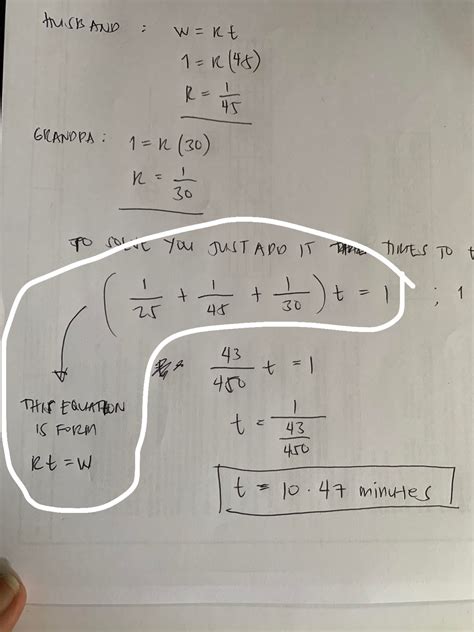 HUSBAND : W = Rt
1 = R(45)
R = 1/45
GRANDPA : 1 = R(30)
R = 1/30
TO SOLVE YOU JUST ADD IT TIMES TO t
(1/25 + 1/45 + 1/30) t = 1 ; 1
43/450 t = 1
THIS EQUATION
IS FORM
Rt = W
t = 1/(43/450)
t = 10.47 minutes